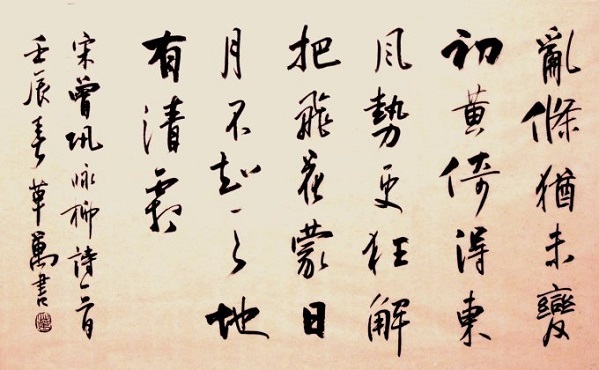 亂條猶未變
初黃倚得東
风勢更狂解
把飛花蒙日
月不知天地
有清霜
宋曾巩咏柳詩一首
壬辰春草萬書